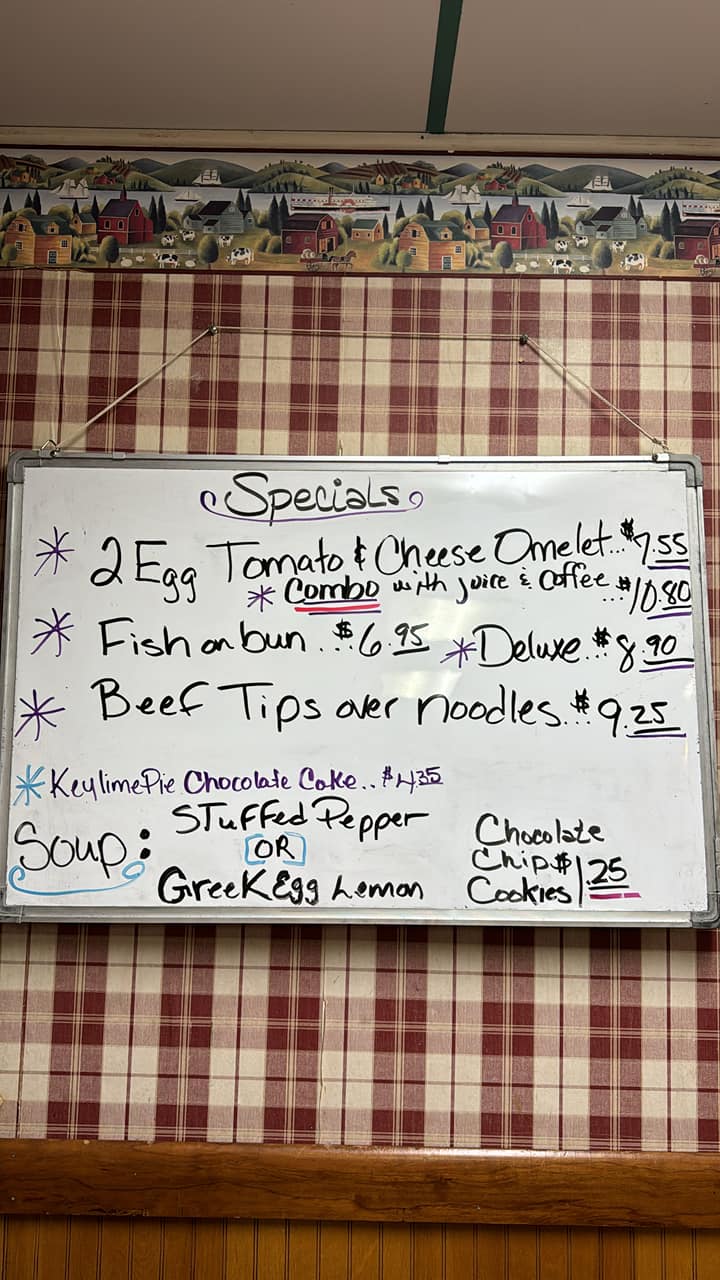 Specials
* 2 Egg Tomato & Cheese Omelet...$7.55
* Combo with juice & Coffee...$10.80
* Fish on bun...$6.95 *Deluxe..$8.90
* Beef Tips over noodles...$9.25
* Keylime Pie Chocolate Cake..$4.35
Soup: Stuffed Pepper
OR
Greek Egg Lemon
Chocolate
Chip $1.25
Cookies